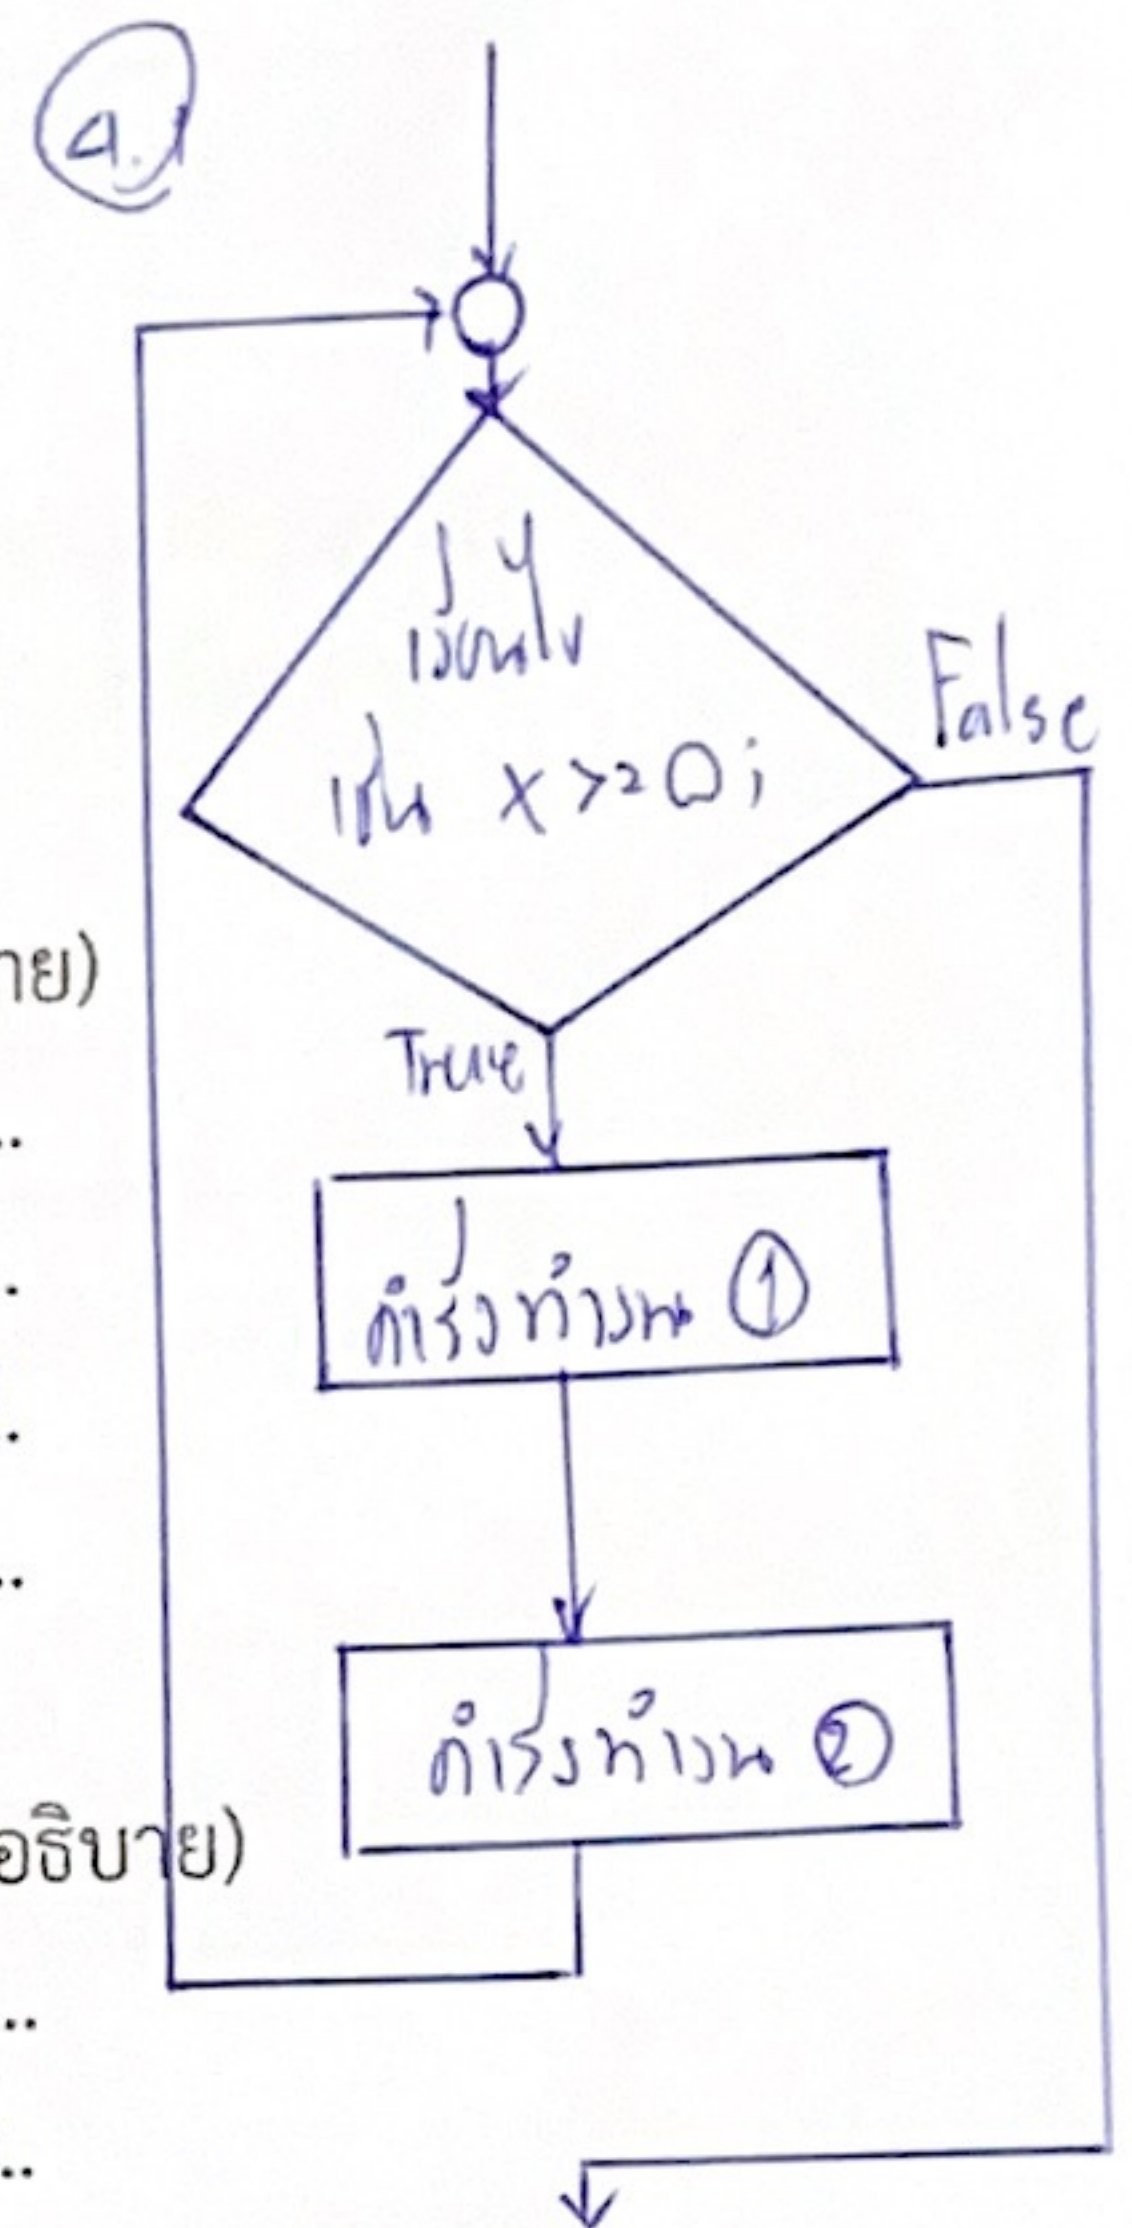 4.1
เงื่อนไข
เช่น x >= 0;
False
าย)
True
คำสั่งทำงาน ①
คำสั่งทำงาน ②
อธิบาย)